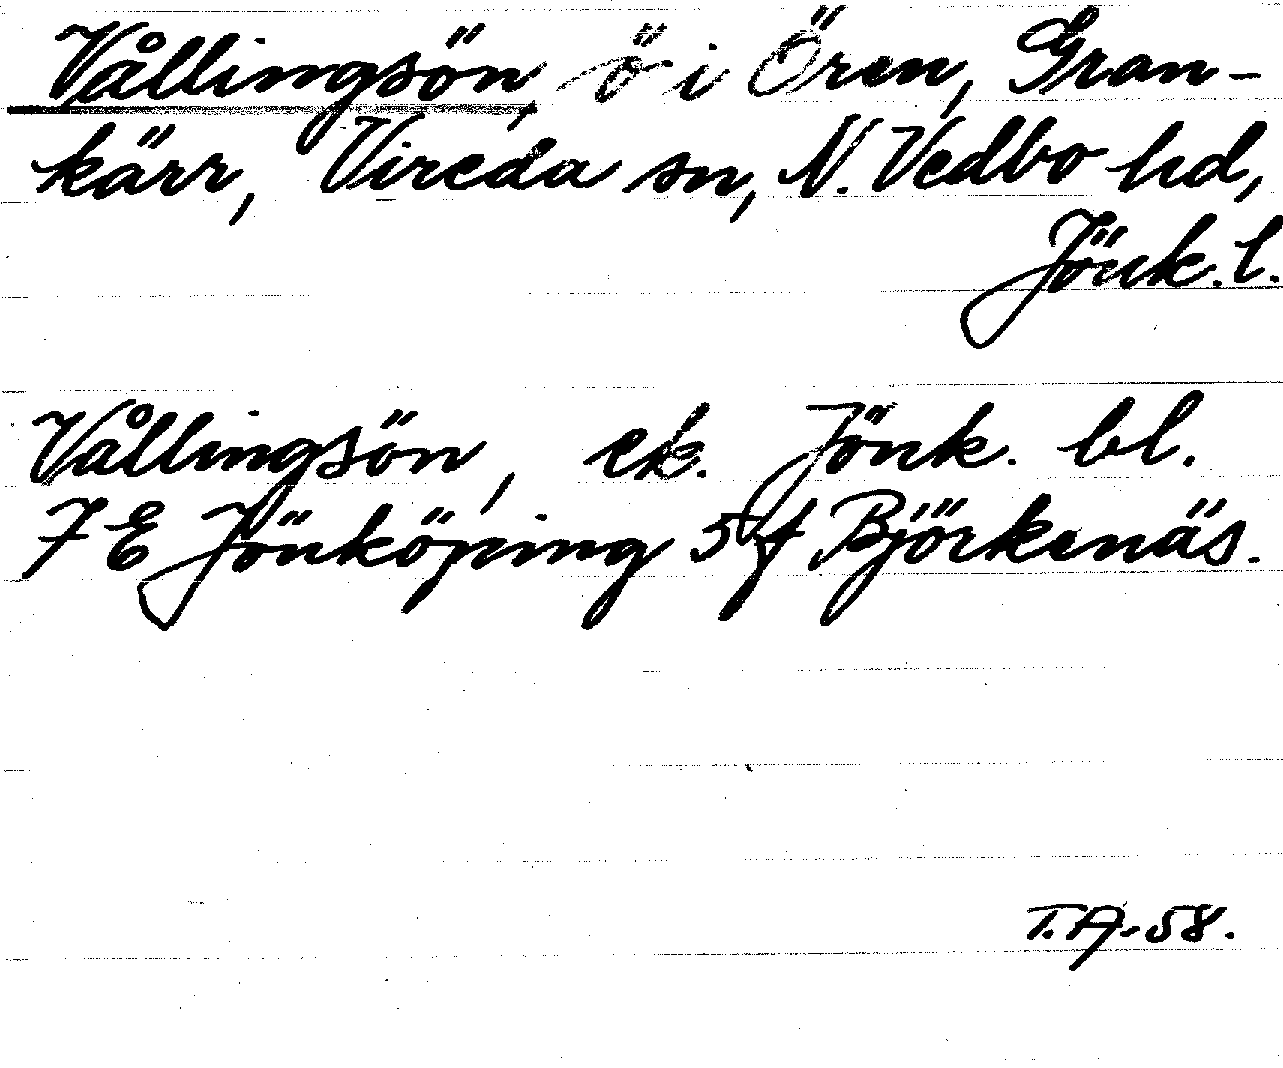 Vållingsön, ö i Ören, Gran-
kärr, Vireda sn, N. Vedbo hd,
Jönk. l.
Vållingsön, ek. Jönk. bl.
7 E Jönköping 5 f Björkenäs.
T.A-58.